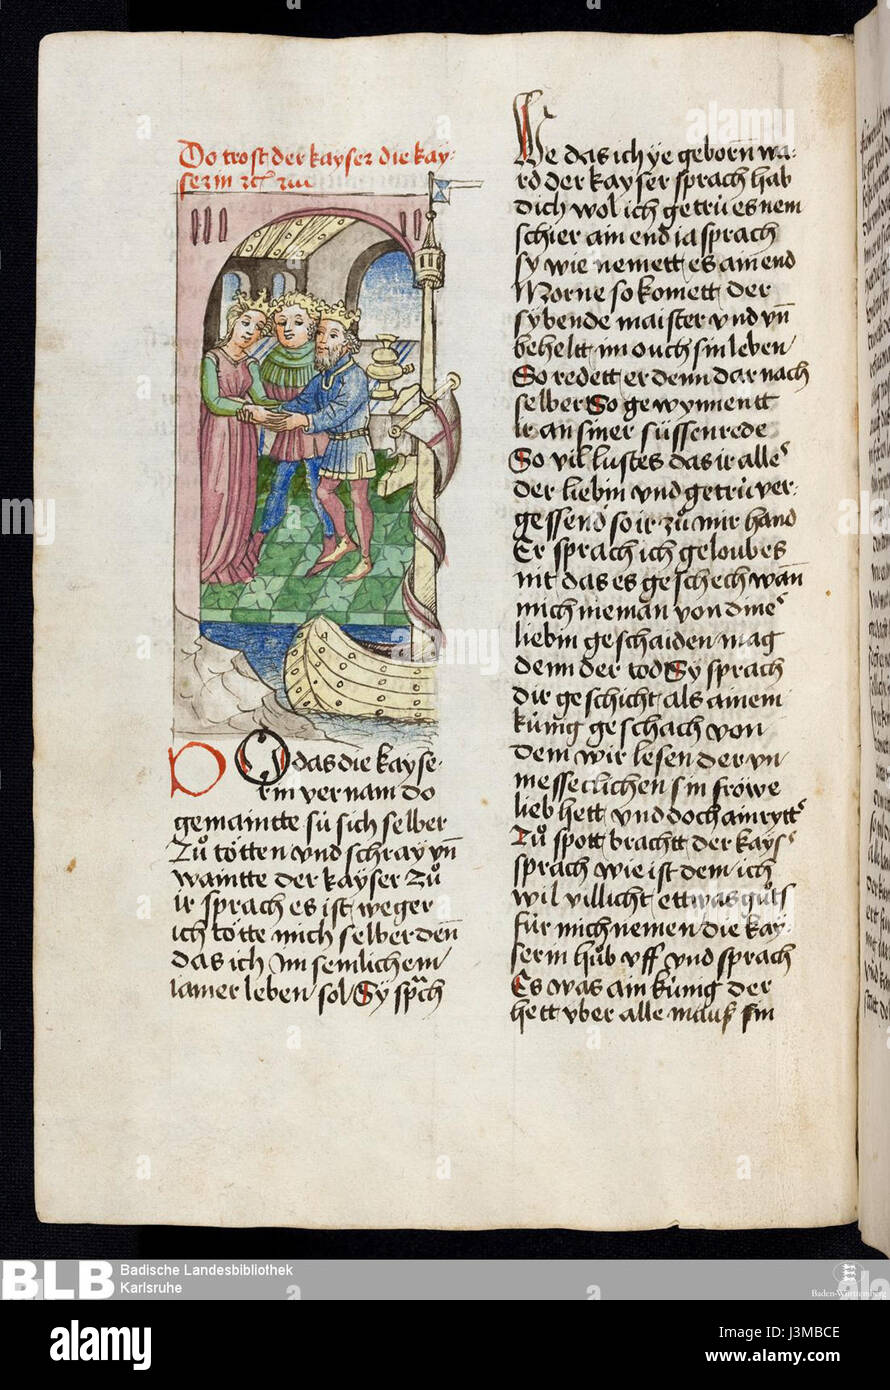 Do trost der kayser die kay-
serin
DO das die kayse-
rin vernam do
gemaintte sü sich selber
zů tötten vnd schray vn̄
waintte der kayser zů
ir sprach es ist weger
ich tötte mich selber den̄
das ich im semlichem
iamer leben sol Sy sprach
We das ich ye geborn̄ wa-
rd der kayser sprach hab
dich wol ich getrü es nem
schier ain end ia sprach
sy wie nemett es ain end
Morne so komett der
sybende maister vnd vn̄
beheltt im ouch sin leben
So redett er denn dar nach
selber So gewynnentt
ir an siner süssen rede
So vil lustes das ir alle
der liebin vnd getrüver-
gessend so ir zů mir hand
Er sprach ich geloub es
nit das es geschech wan̄
mich nieman von diner
liebin geschaiden mag
denn der tod Sy sprach
dir geschicht als ainem
künig geschach von
dem wir lesen der vn-
messeclichen sin fröwe
lieb hett vnd doch ain rytter
zů spott brachtt der kayser
sprach wie ist dem ich
wil villicht ettwas gůts
für mich nemen die kay-
serin hůb vff vnd sprach
Es was ain künig der
hett vber alle mauß sin
BLB
Badische Landesbibliothek
Karlsruhe
Baden-Württemberg
alamy
Image ID: J3MBCE
www.alamy.com